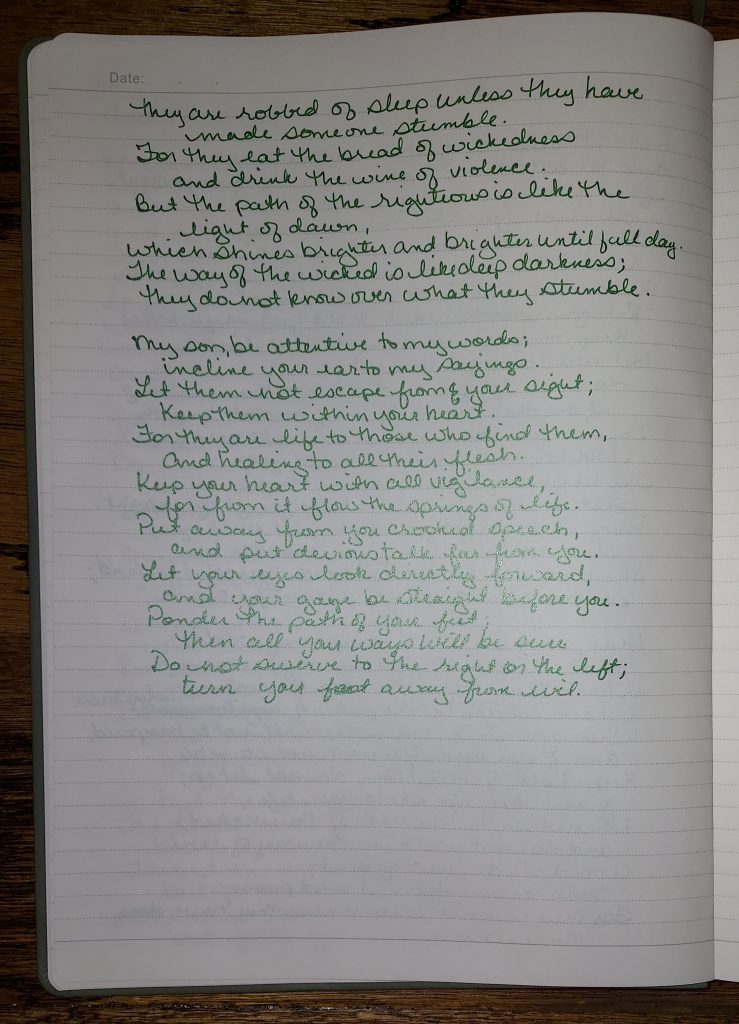 Date:
They are robbed of sleep unless they have
made someone stumble.
For they eat the bread of wickedness
and drink the wine of violence.
But the path of the righteous is like the
light of dawn,
which shines brighter and brighter until full day.
The way of the wicked is like deep darkness;
they do not know over what they stumble.
My son, be attentive to my words;
incline your ear to my sayings.
Let them not escape from your sight;
Keep them within your heart.
For they are life to those who find them,
and healing to all their flesh.
Keep your heart with all vigilance,
for from it flow the springs of life.
Put away from you crooked speech,
and put devious talk far from you.
Let your eyes look directly forward,
and your gaze be straight before you.
Ponder the path of your feet;
then all your ways will be sure
Do not swerve to the right or the left;
turn your foot away from evil.